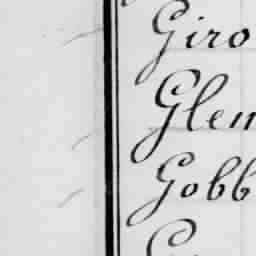 Giro
Glen
Gobb